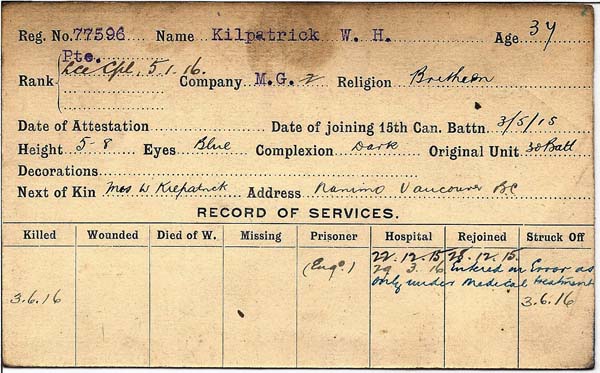 Reg. No. 77596 Name Kilpatrick W. H. Age 34
Pte.
Rank Lce Cpl. 5.1.16. Company M.G. 2 Religion Bretheen
Date of Attestation Date of joining 15th Can. Battn. 3/5/15
Height 5-8 Eyes Blue Complexion Dark Original Unit 30 Batt
Decorations
Next of Kin Mrs W Kilpatrick Address Nanimo Vancouver BC
RECORD OF SERVICES.
Killed Wounded Died of W. Missing Prisoner Hospital Rejoined Struck Off
22.12.15 28.12.15.
(Enq.) 29 3.16 Entered in Error as
only under medical treatment
3.6.16 3.6.16